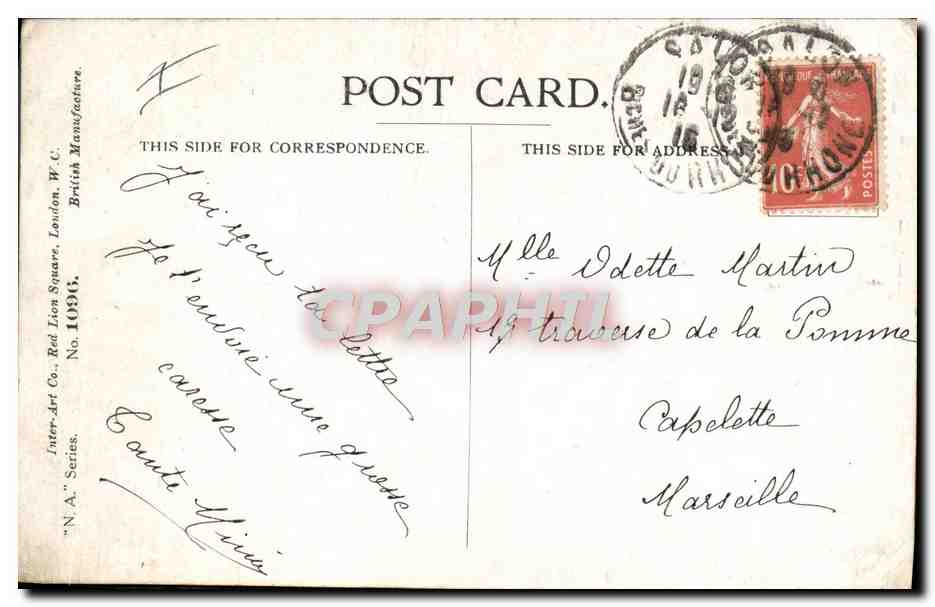 POST CARD.
THIS SIDE FOR CORRESPONDENCE.
THIS SIDE FOR ADDRESS.
J'ai reçu ta lettre
Je t'envoie une grosse
caresse
Tante Mimi
Mlle Odette Martin
19 traverse de la Pomme
Capelette
Marseille
Inter-Art Co., Red Lion Square, London, W.C.
"N.A." Series. No. 1096. British Manufacture.
SALON
19
16
BCHES DU RHONE
SALON
RHONE
10
POSTES
CPAPHIL